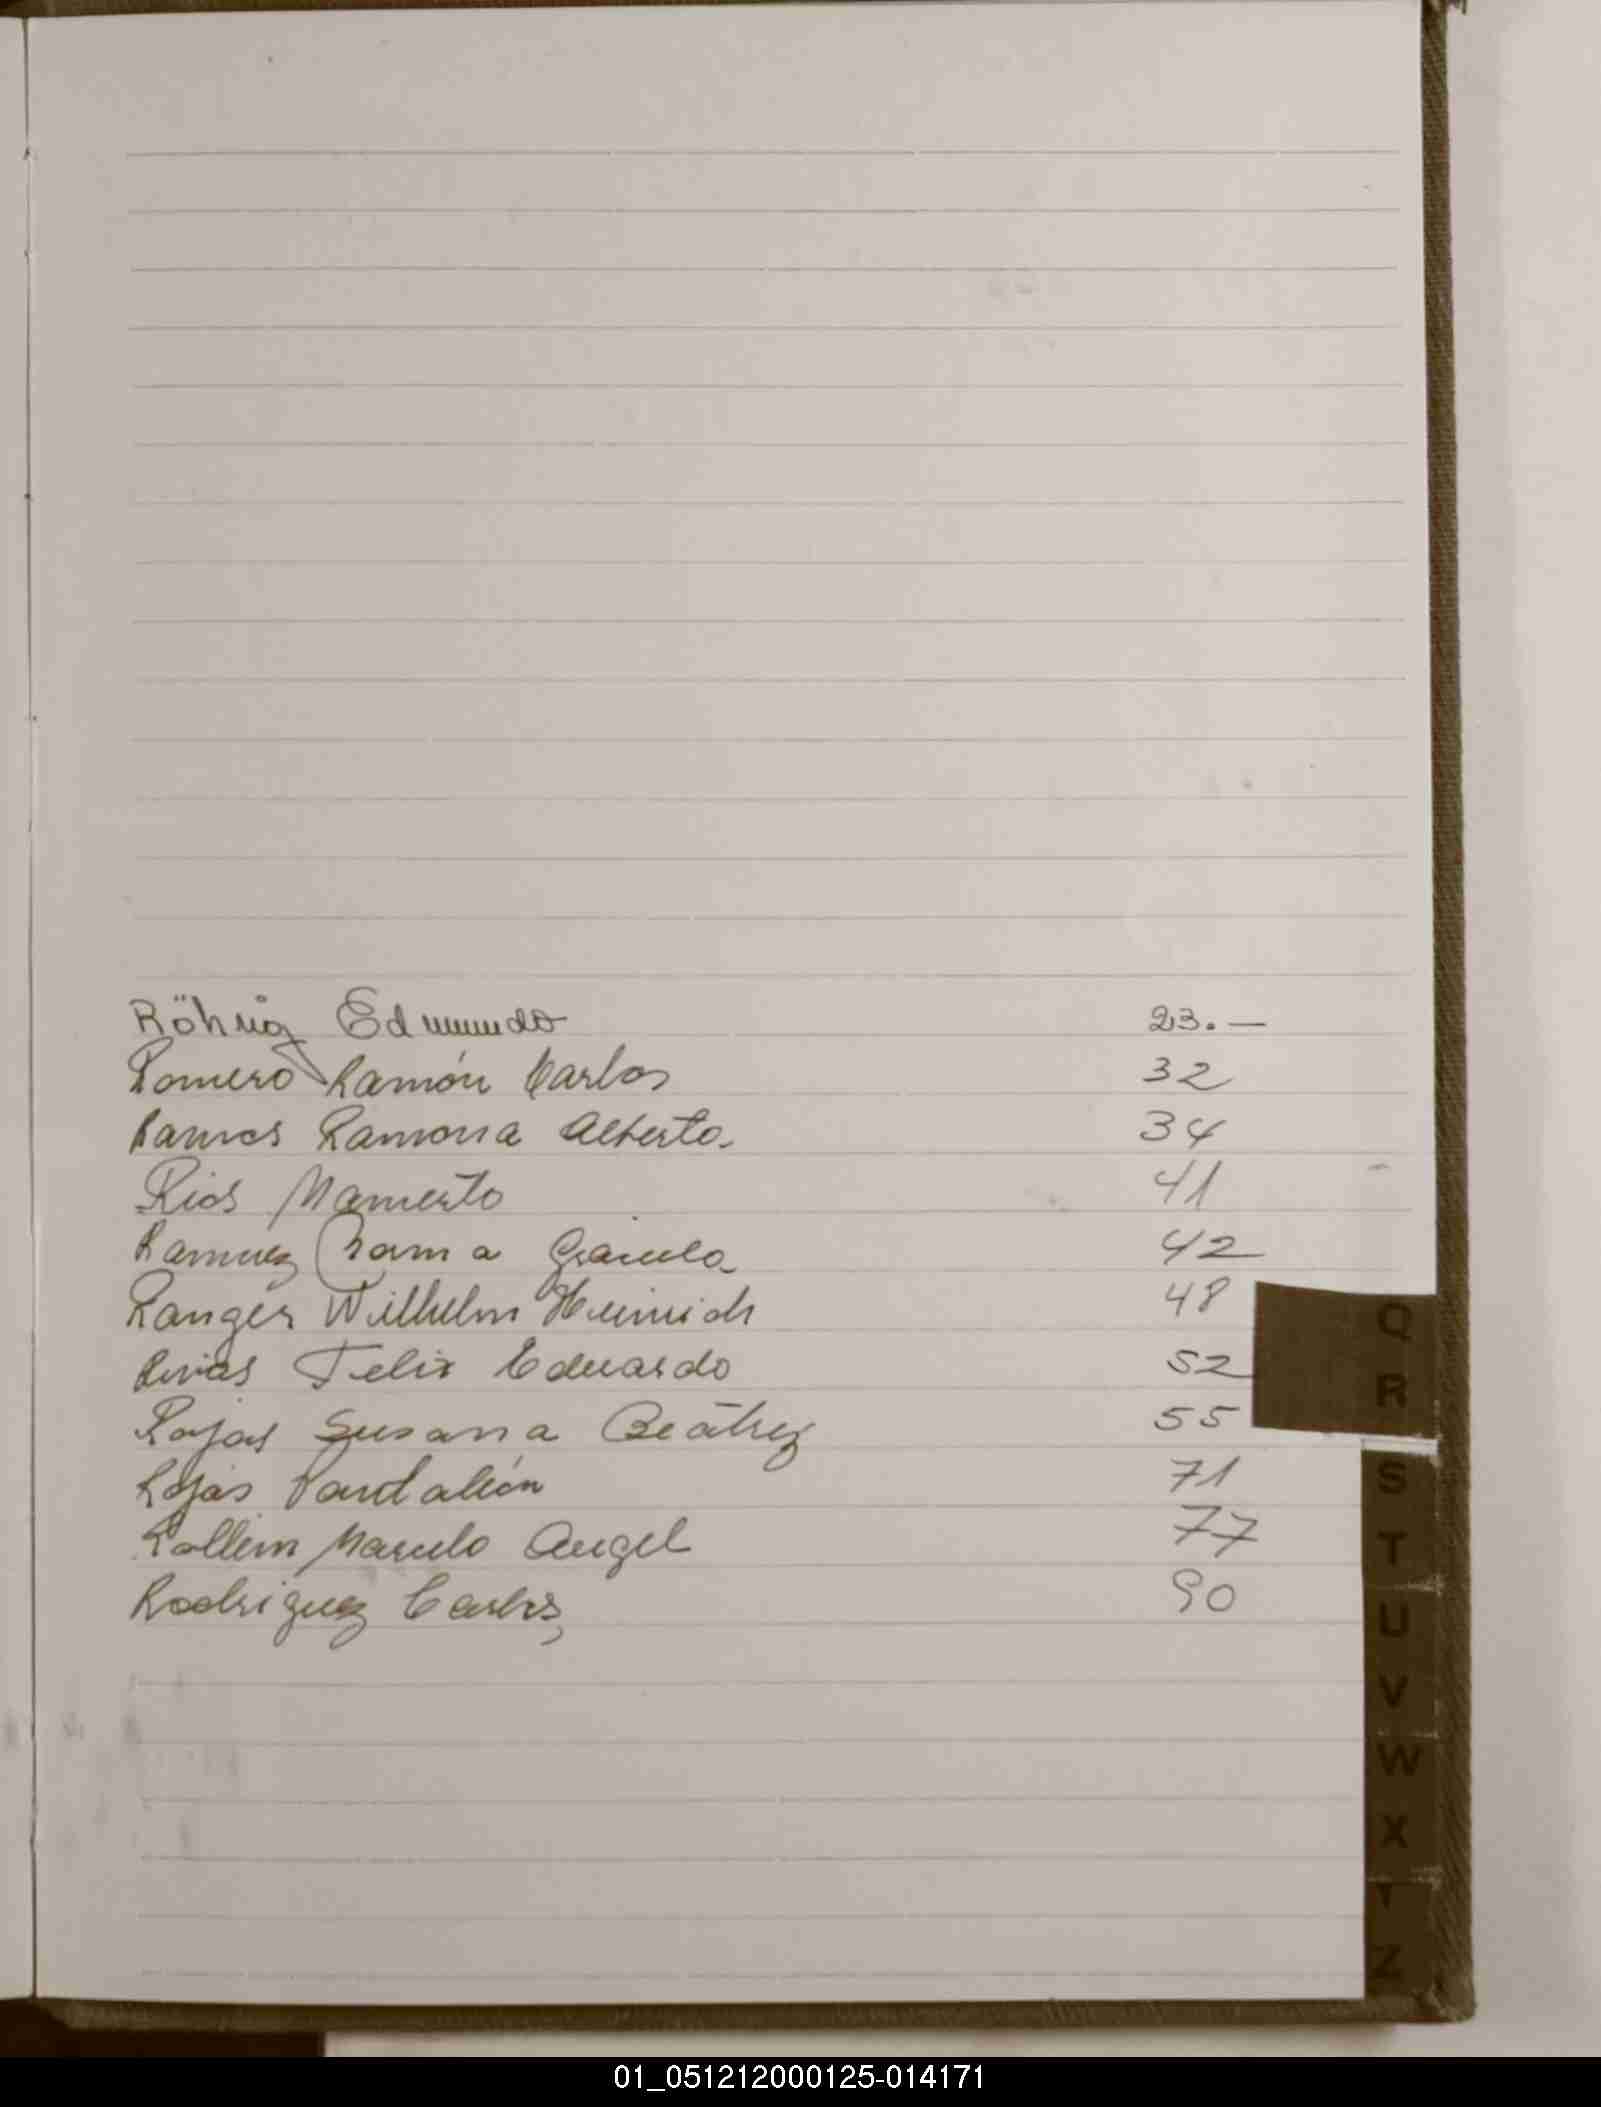 Röhrig Edmundo 23.—
Romero Ramón Carlos 32
Ramos Ramona Alberta 34
Rios Mamerto 41
Ramirez Graciela 42
Ranger Wilhelm Heinrich 48
Rivas Felix Eduardo 52
Rojas Susana Beatriz 55
Rojas Pantaleón 71
Marcelo Angel 77
Rodriguez Carlos, 90
Q
R
S
T
U
V
W
X
Y
Z
01_051212000125-014171